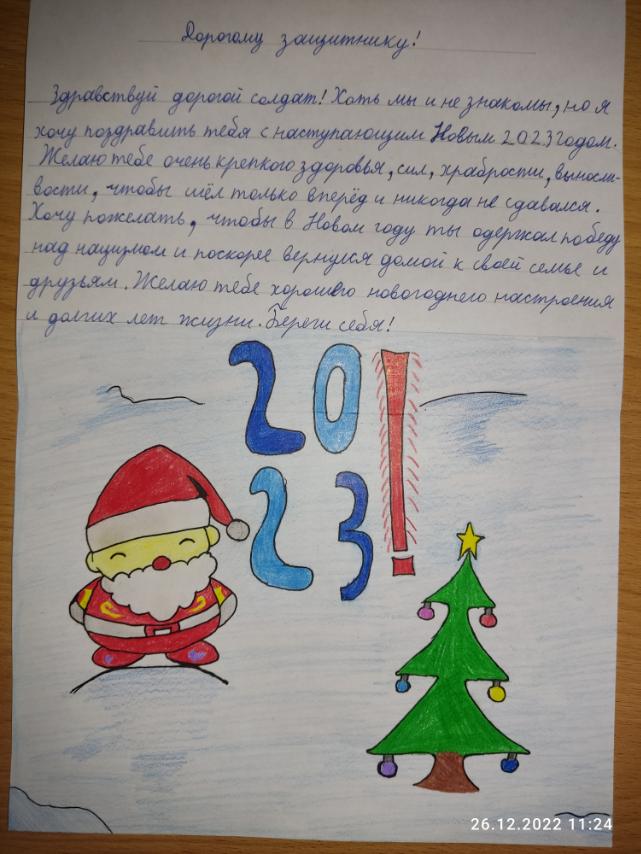 Дорогому защитнику!
Здравствуй дорогой солдат! Хоть мы и не знакомы, но я
хочу поздравить тебя с наступающим Новым 2023 годом.
Желаю тебе очень крепкого здоровья, сил, храбрости, выносли-
вости, чтобы шёл только вперёд и никогда не сдавался.
Хочу пожелать, чтобы в Новом году ты одержал победу
над нацизмом и поскорее вернулся домой к своей семье и
друзьям. Желаю тебе хорошего новогоднего настроения
и долгих лет жизни. Береги себя!
20!
23
26.12.2022 11:24